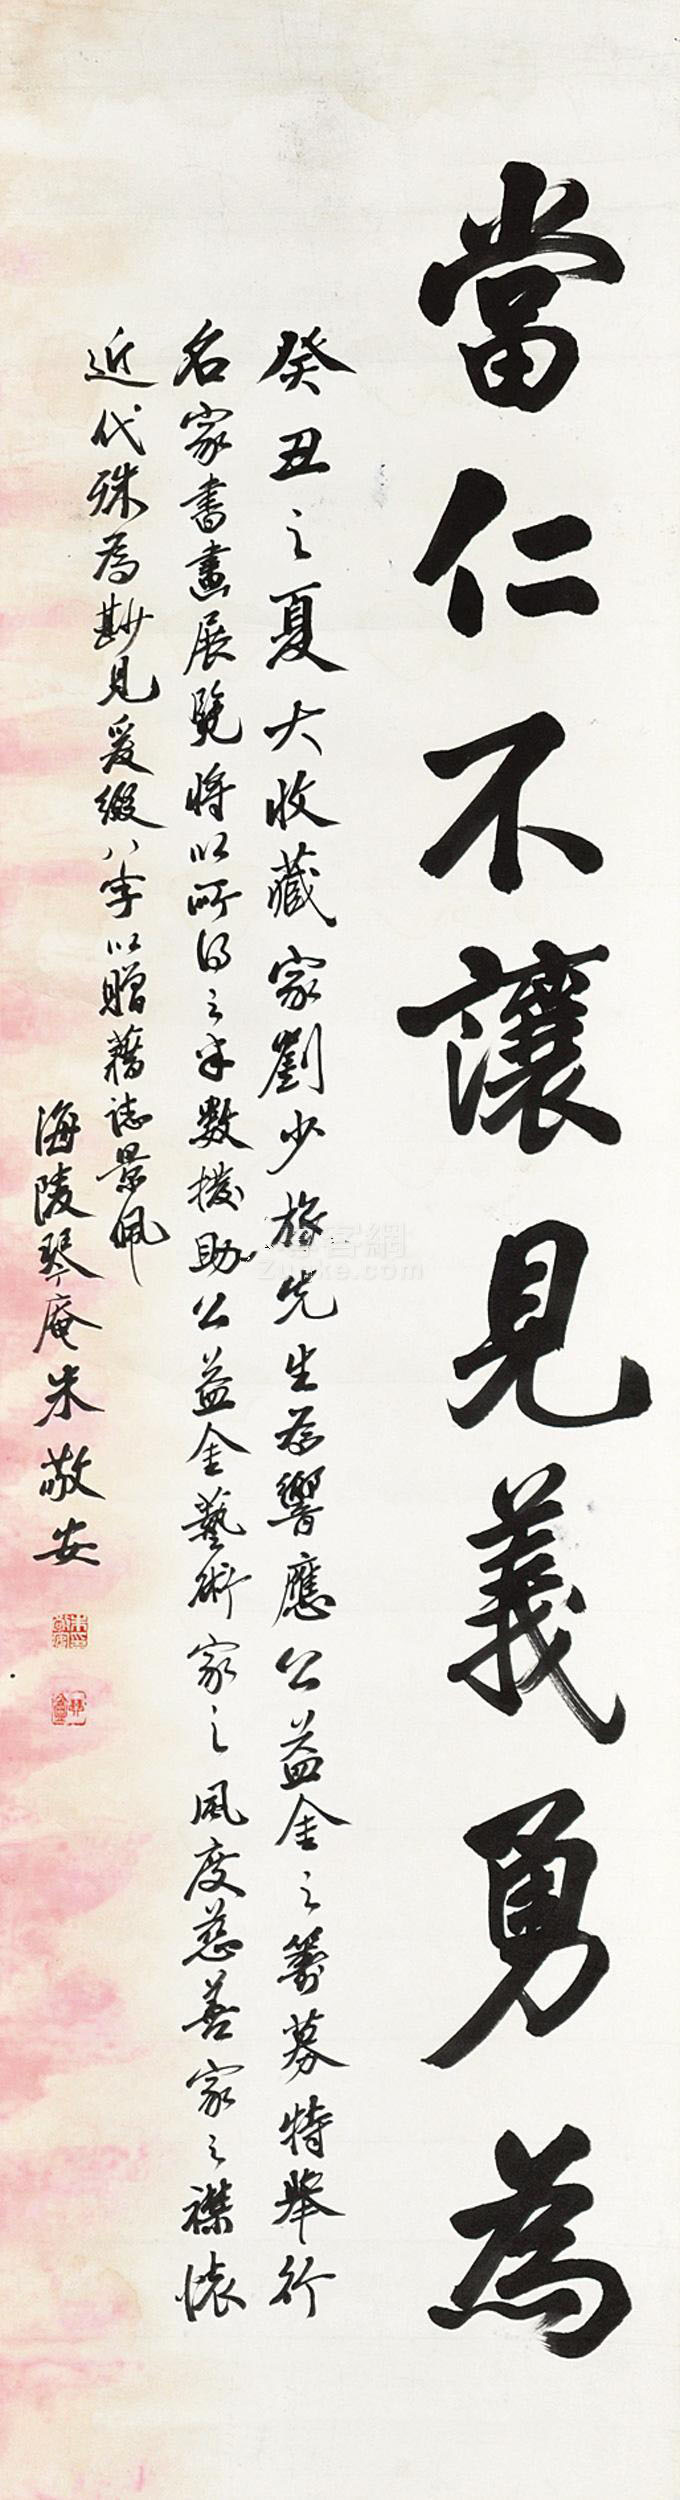 當仁不讓見義勇為
癸丑之夏大收藏家劉少旅先生為響應公益金之籌募特舉行
名家書畫展覽將以所得之半數撥助公益金藝術家之風度慈善家之襟懷
近代殊為尠見爰綴八字以贈藉誌景佩
海陵琴庵朱敬安
客網
Zuoke.com